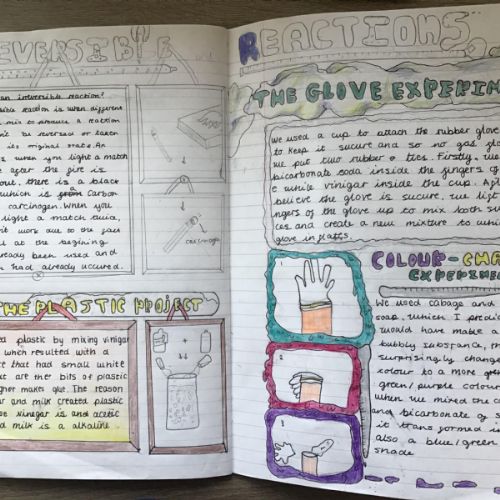 EVERSIBLE
an irreversible reaction?
sible reaction is when different
mix to produce a reaction
n't be reversed or taken
its original state. An
is when you light a match
after the fire is
out, there is a black
which is from carbon
carcinogen. When you
light a match twice,
it work due to the fact
at the begining
already been used and
had already occured.
carcinogen
THE PLASTIC PROJECT
ed plastic by mixing vinigar
when resulted with a
e that had small white
at are the bits of plastic
gher makes glue. The reason
ar and milk created plastic
se vinegar is and acetic
d milk is a alkaline.
REACTIONS
THE GLOVE EXPERIM
We used a cup to attach the rubber glove
to keep it sucure and so no gas
we put two rubber ties. Firstly, we
bicarbonate soda inside the fingers of
e while vinigar inside the cup. Af
believe the glove is sucure, we lift
ngers of the glove up to mix both su
ces and create a new mixture to whi
glove inflats.
1
2
3
COLOUR-CHA
EXPERIME
We used cabage and
soap, which I predic
would have make a
bubbly substance, th
surprisingly change
colour to a more
green/purple colour
when we mixed the c
and bicarbonate of s
it transformed i
also a blue/green
shade